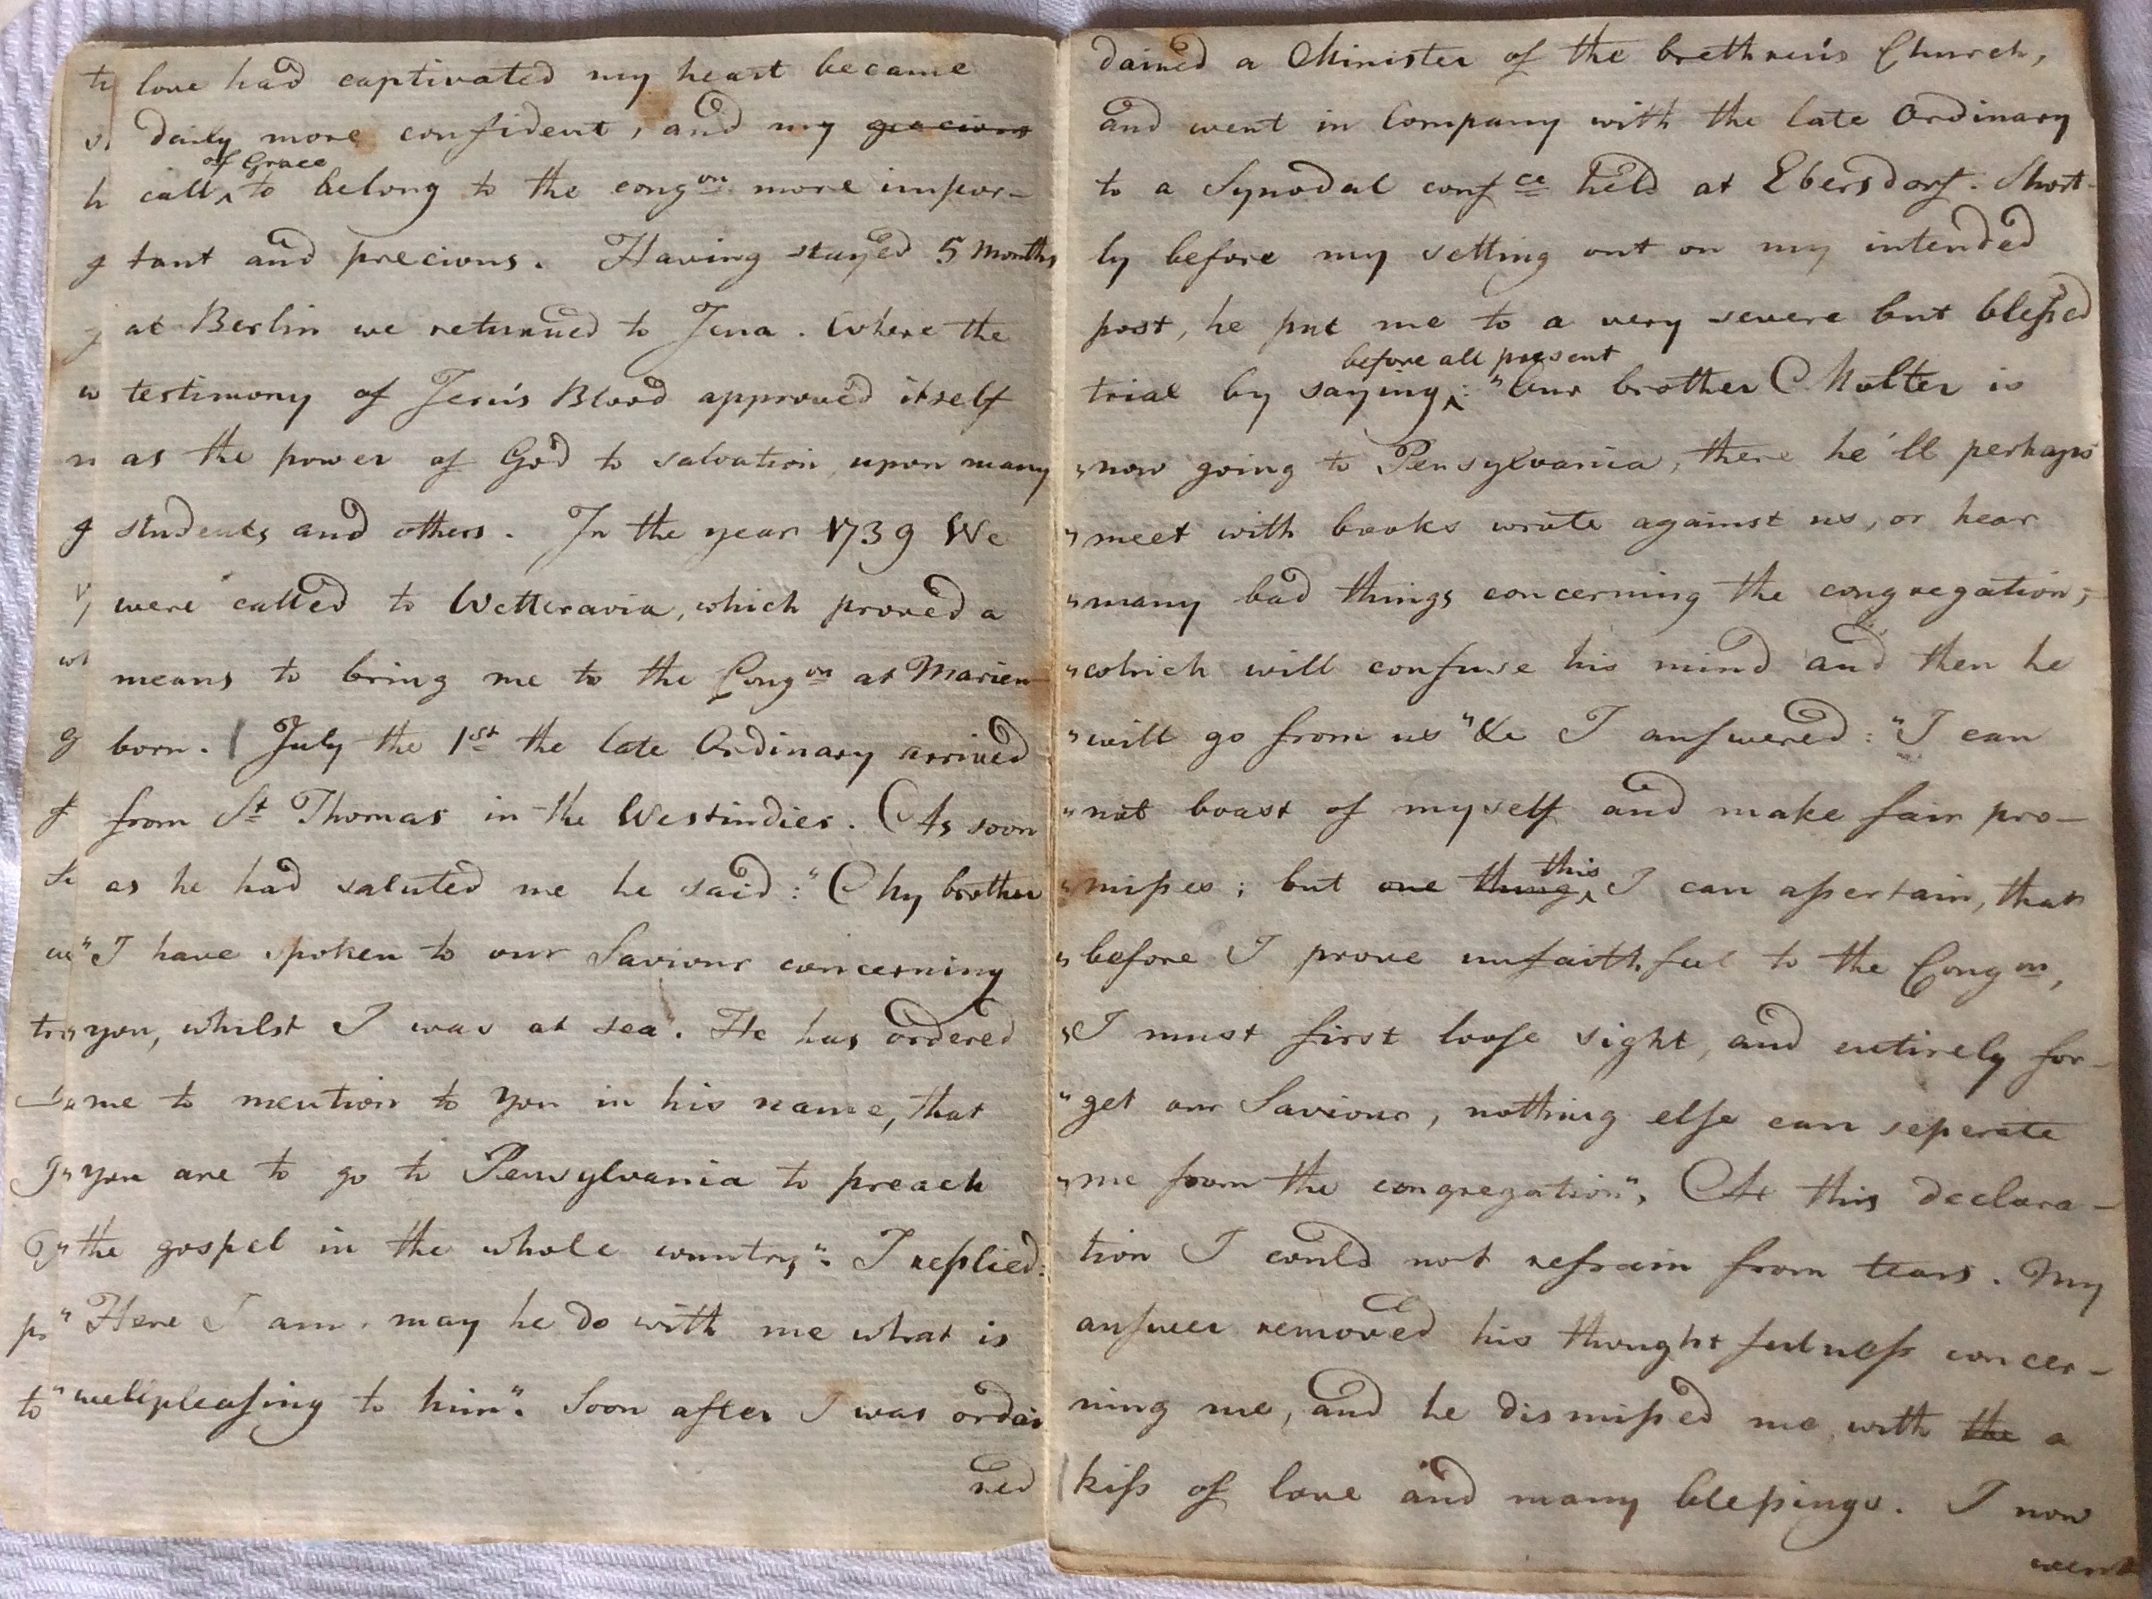 love had captivated my heart became
daily more confident, and my gracious
of Grace
call ‸ to belong to the congon more impor-
tant and precious. Having stayed 5 Months
at Berlin we returned to Jena. Where the
testimony of Jesu's Blood approved itself
as the power of God to salvation upon many
students and others. In the year 1739 We
were called to Wetteravia, which proved a
means to bring me to the Congon at Marien-
born. | July the 1st the late Ordinary arrived
from St Thomas in the Westindies. As soon
as he had saluted me he said: "My brother
"I have spoken to our Saviour concerning
"you, whilst I was at sea". He has ordered
"me to mention to you in his name, that
"you are to go to Pensylvania to preach
"the gospel in the whole country". I replied:
"Here I am, may he do with me what is
"wellpleasing to him". Soon after I was ordai
ned
dained a Minister of the brethren's Church,
and went in Company with the late Ordinary
to a Synodal confce held at Ebersdorf. Short-
ly before my setting out on my intended
post, he put me to a very severe but blessed
before all present
trial by saying ‸: "Our brother Molter is
"now going to Pensylvania, there he'll perhaps
"meet with books wrote against us, or hear
"many bad things concerning the congregation,
"which will confuse his mind and then he
"will go from us" &c I answered: "I can
"not boast of myself and make fair pro-
this
"mises; but one thing ‸ I can assertain, that
"before I prove unfaithful to the Congon,
"I must first loose sight, and entirely for-
"get our Saviour, nothing else can seperate
"me from the congregation". At this declara-
tion I could not refrain from tears. My
answer removed his thoughtfulness concer-
ning me, and he dismissed me with the a
kiss of love and many blessings. I now
went